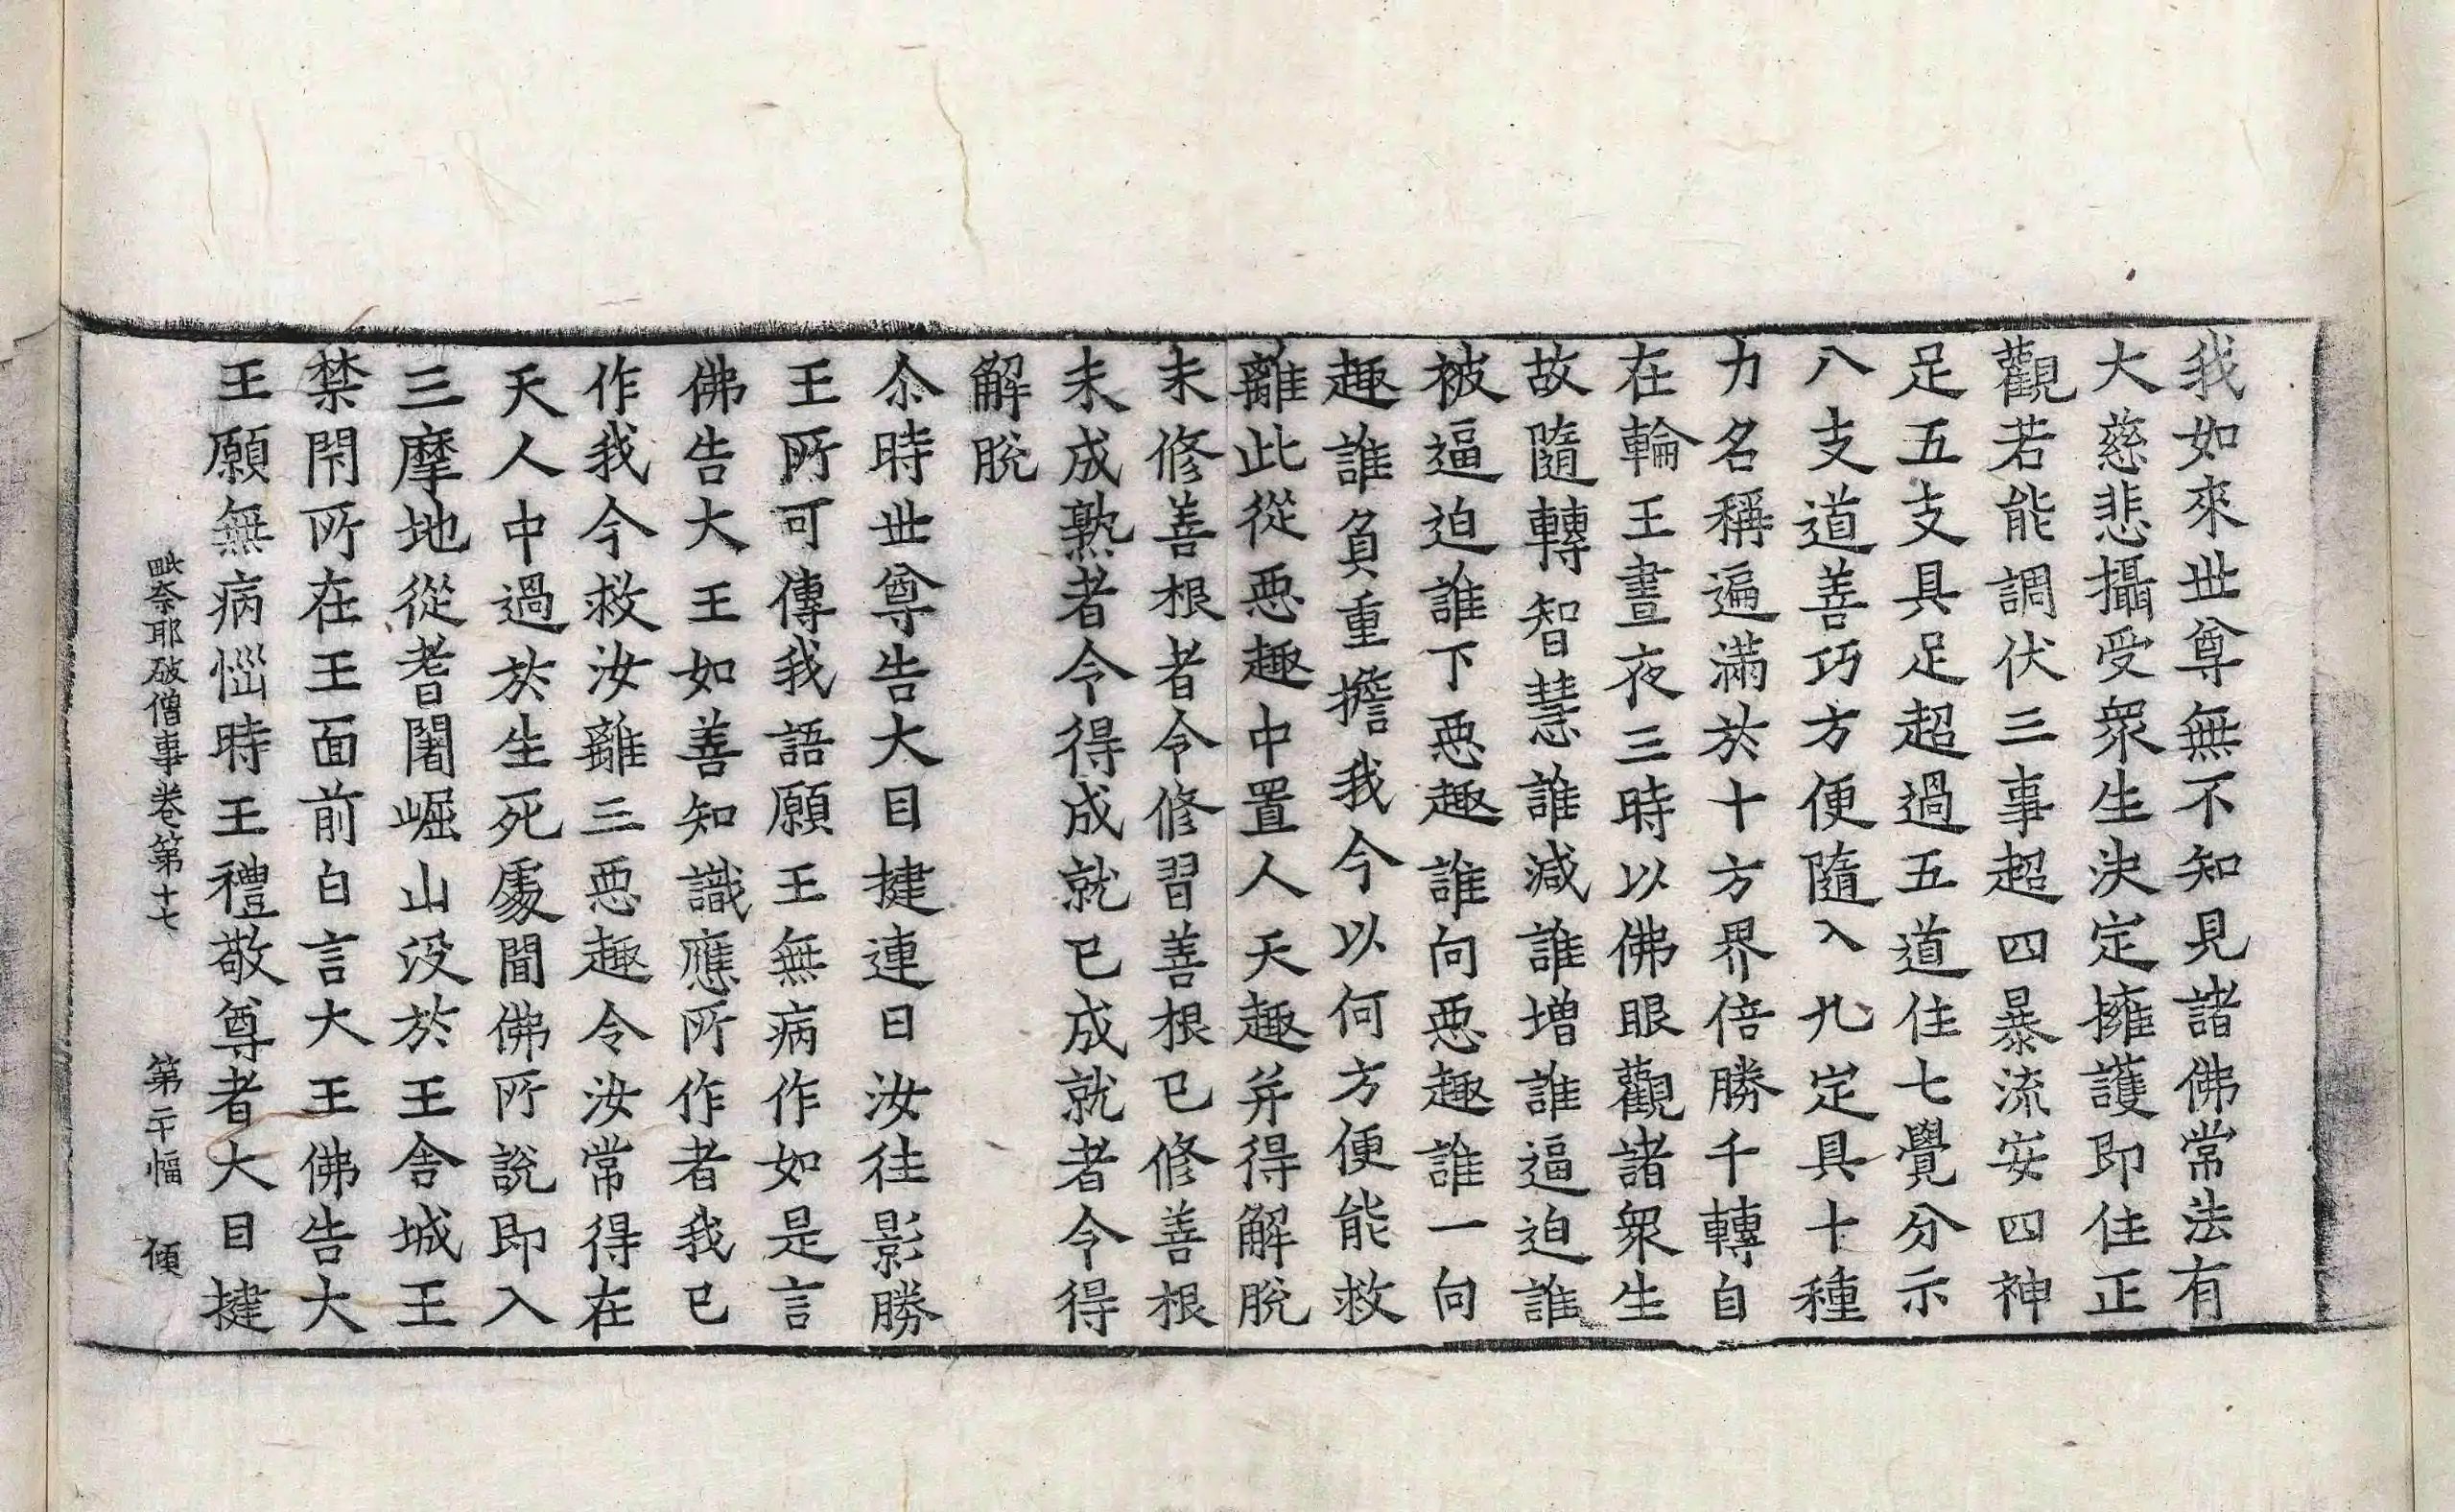 我如來世尊無不知見諸佛常法有
大慈悲攝受衆生決定擁護即住正
觀若能調伏三事超四暴流安四神
足五支具足超過五道住七覺分示
八支道善巧方便隨入九定具十種
力名稱遍滿於十方界倍勝千轉自
在輪王晝夜三時以佛眼觀諸衆生
故隨轉智慧誰減誰增誰逼迫誰
被逼迫誰下惡趣誰向惡趣誰一向
趣誰負重擔我今以何方便能救
離此從惡趣中置人天趣并得解脫
未修善根者令修習善根已修善根
未成熟者令得成就已成就者令得
解脫
尒時世尊告大目揵連曰汝往影勝
王所可傳我語願王無病作如是言
佛告大王如善知識應所作者我已
作我今救汝離三惡趣令汝常得在
天人中過於生死處聞佛所說即入
三摩地從耆闍崛山沒於王舍城王
禁閇所在王面前白言大王佛告大
王願無病惱時王禮敬尊者大目揵
毗奈耶破僧事卷第十七 第二十幅 傾